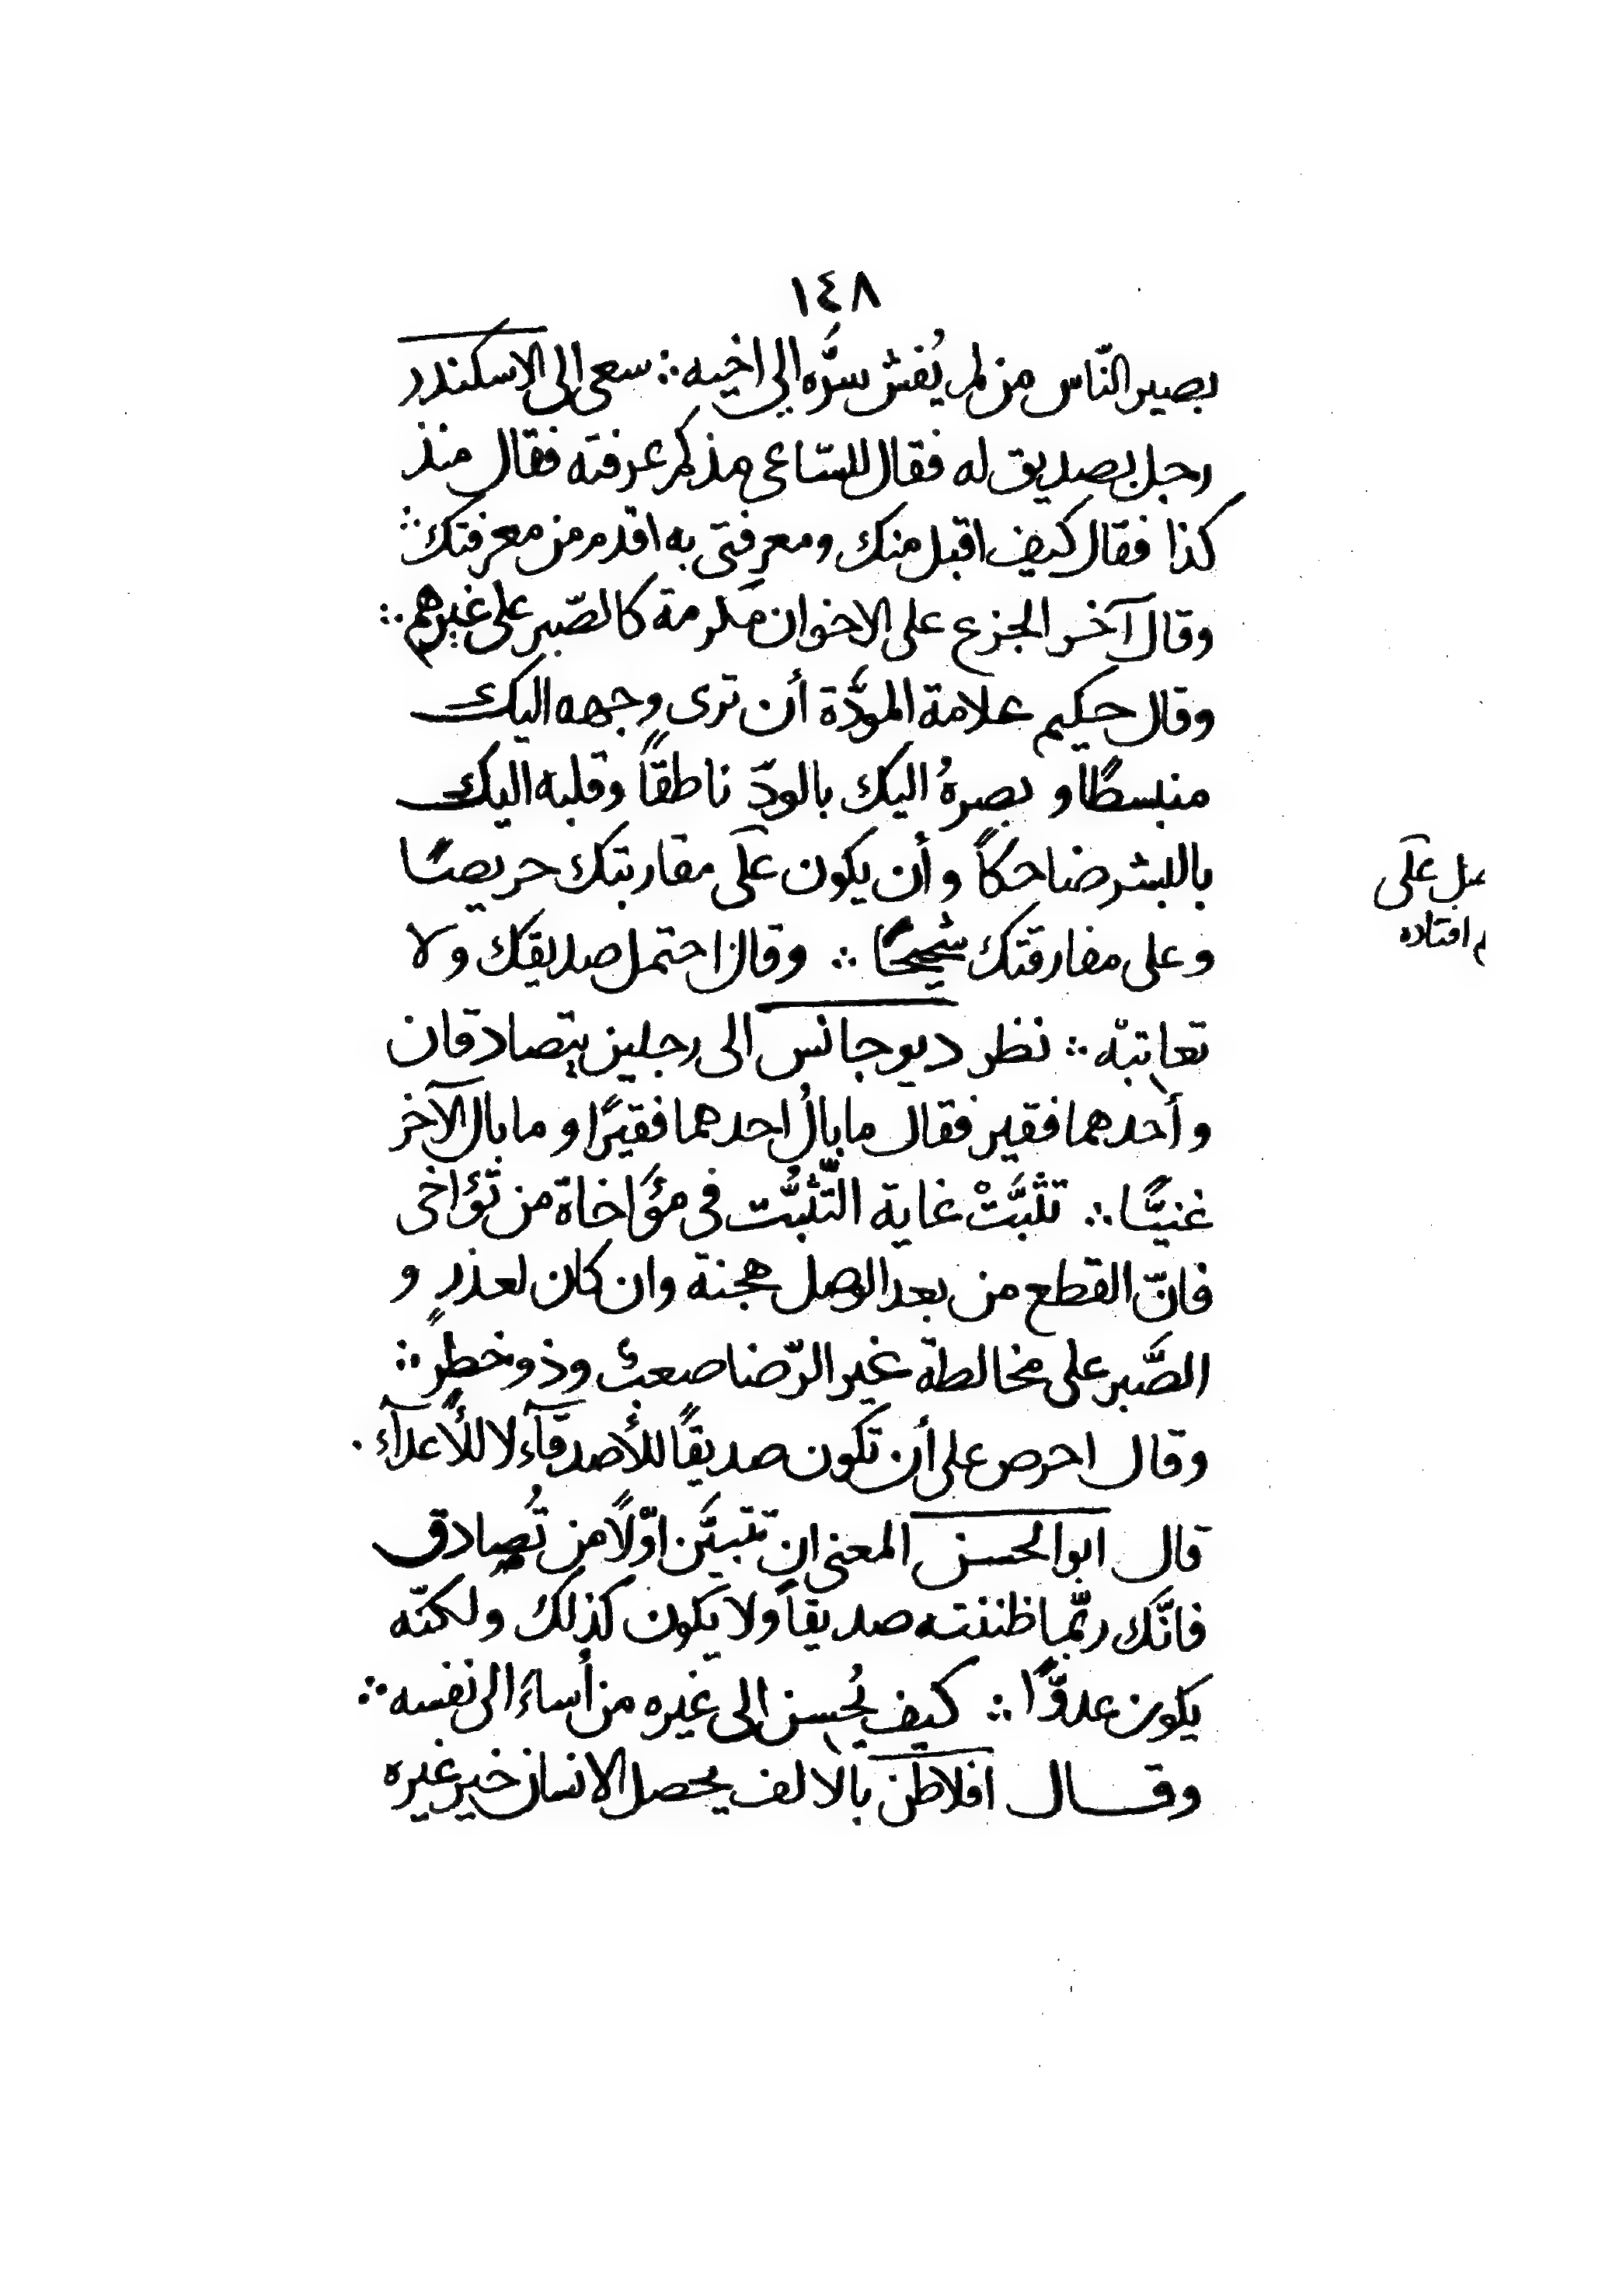 ١٤٨
بصير النّاس من لم يُفش سرَّه الى اخيه ∴ سعى الى الاسكندر
رجل بصديق له فقال للسّاعى مذ كم عرفته فقال منذ
كذا فقال كيف اقبل منك ومعرفتى به اقدم من معرفتك ∴
وقال آخر الجزع على الاخوان مكرمة كالصّبر على غيرهم ∴
وقال حكيم علامة المودَّة أن ترى وجهه اليك
منبسطًا و بصرهُ اليك بالودّ ناطقاً وقلبه اليك
بالبشر ضاحكاً وأن يكون على مقاربتك حريصًا
وعلى مفارقتك شحيحًا ∴ وقال احتمل صديقك ولا
تعاتبه ∴ نظر ديوجانس الى رجلين يتصادقان
وأحدهما فقير فقال ما بالُ احدهما فقيرًا و ما بال الآخر
غنيًّا ∴ تثبَّتْ غاية التّثبُّت فى مؤَاخاة من تؤاخى
فانّ القطع من بعد الوصل هجنة وان كان لعذرٍ و
الصَّبر على مخالطة غير الرّضا صعبٌ وذو خطرٍ ∴
وقال احرص على أن تكون صديقًا للأصدقآء لا للأعدآء ٠
قال ابو الحسن المعنى ان تتبيَّن اوّلًا من تُصادق
فانّك ربّما ظننته صديقاً ولا يكون كذلك ولكنّه
يكون عدوًّا ∴ كيف يُحسن الى غيره من أساءَ الى نفسه ∴
وقال افلاطن بالالف يحصل الانسان خير غيره
على
افتاده